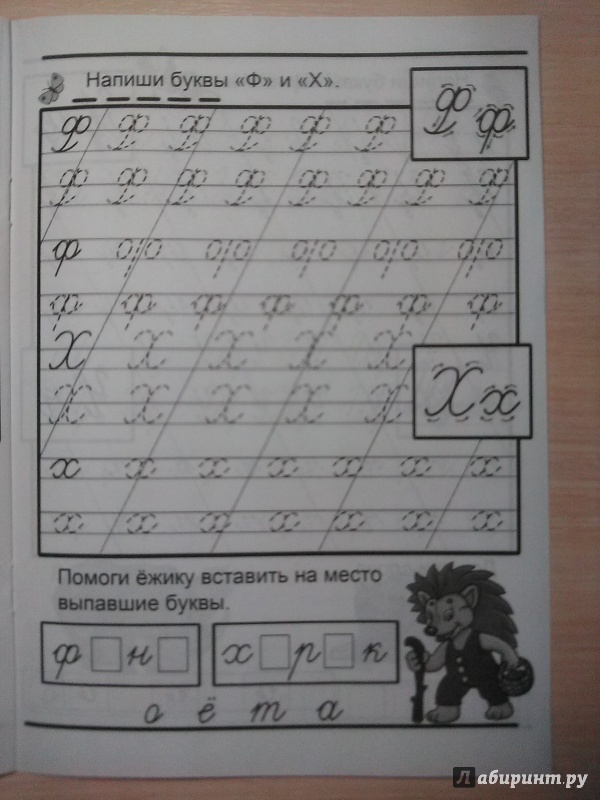 Напиши буквы «Ф» и «Х».
Ф ф
Ф Ф Ф Ф Ф Ф
Ф Ф Ф Ф Ф Ф Ф Ф
ф ф ф ф ф ф
ф ф ф ф ф ф ф
Х Х Х Х Х
Х х
Х Х Х Х Х
х х х х х х х
х х х х х х х
Помоги ёжику вставить на место
выпавшие буквы.
ф н х р к
о ё т а
Лабиринт.ру